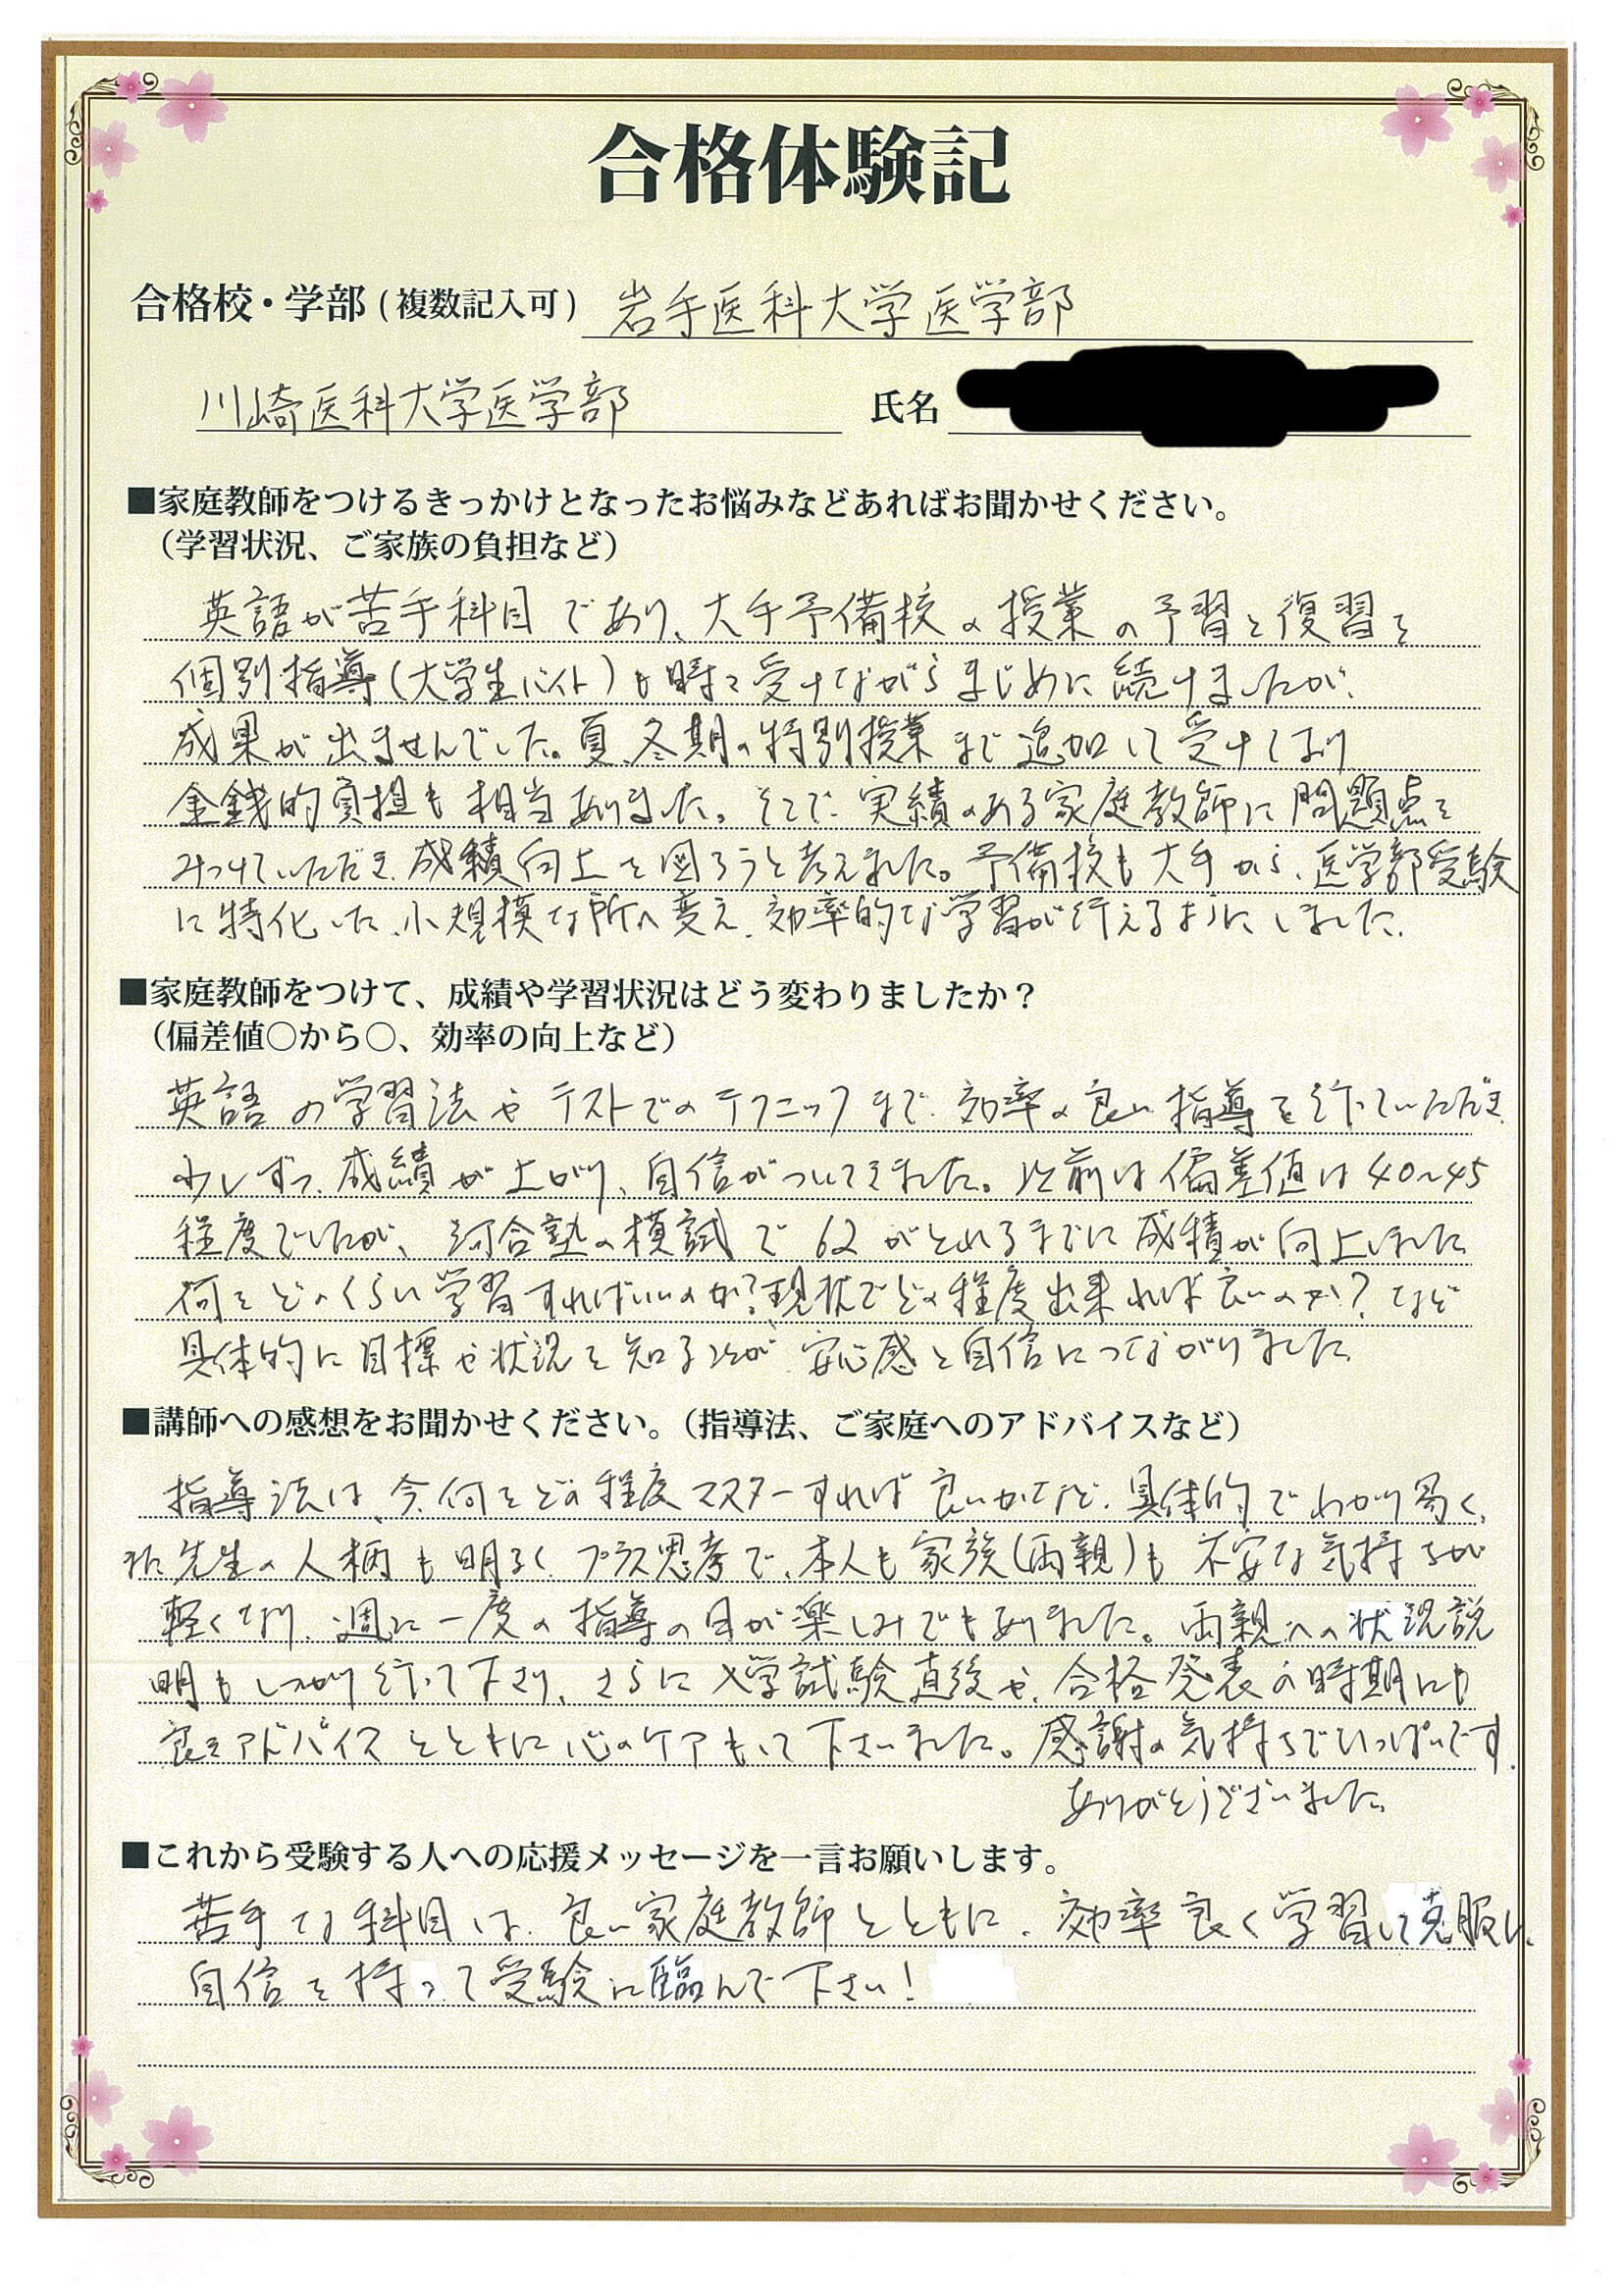 合格体験記
合格校・学部(複数記入可) 岩手医科大学医学部
川崎医科大学医学部 氏名
■家庭教師をつけるきっかけとなったお悩みなどあればお聞かせください。
(学習状況、ご家族の負担など)
英語が苦手科目であり、大手予備校の授業の予習と復習を
個別指導(大学生バイト)も時々受けながらまじめに続けましたが、
成果が出ませんでした。夏、冬期の特別授業まで追加して受けており
金銭的負担も相当ありました。そこで、実績のある家庭教師に問題点を
みつけていただき、成績向上を図ろうと考えました。予備校も大手から、医学部受験
に特化した、小規模な所へ変え、効率的な学習が行えるようにしました。
■家庭教師をつけて、成績や学習状況はどう変わりましたか?
(偏差値○から○、効率の向上など)
英語の学習法やテストでのテクニックまで、効率の良い指導を行っていただき、
少しずつ、成績が上がり、自信がついてきました。以前は偏差値は40~45
程度でしたが、河合塾の模試で62がとれるまでに成績が向上しました
何をどのくらい学習すればいいのか?現状でどの程度出来れば良いのか?など
具体的に目標や状況を知ることが、安心感と自信につながりました。
■講師への感想をお聞かせください。(指導法、ご家庭へのアドバイスなど)
指導法は、今、何をどの程度マスターすれば良いかなど、具体的でわかり易く、
また先生の人柄も明るく、プラス思考で、本人も家族(両親)も不安な気持ちが
軽くなり、週に一度の指導の日が楽しみでもありました。両親への状況説
明もしっかり行って下さり、さらに入学試験直後や、合格発表の時期にも
良きアドバイスとともに心のケアもして下さいました。感謝の気持ちでいっぱいです。
ありがとうございました。
■これから受験する人への応援メッセージを一言お願いします。
苦手な科目は、良い家庭教師とともに、効率良く学習して克服し、
自信を持って受験に臨んで下さい!